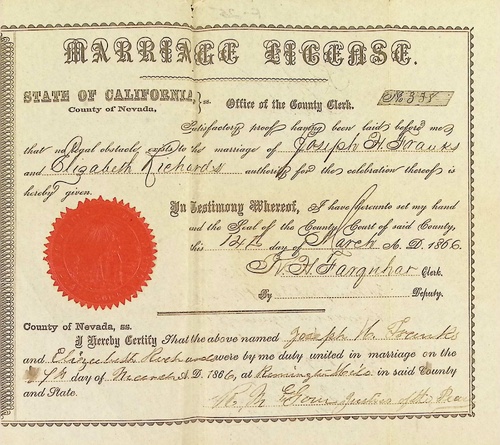 MARRIAGE LICENSE.
STATE OF CALIFORNIA, } ss. Office of the County Clerk. No 338
County of Nevada,
Satisfactory proof having been laid before me
that no legal obstacle exists to the marriage of Joseph H. Franks
and Elizabeth Richards authority for the celebration thereof is
hereby given.
In Testimony Whereof, I have hereunto set my hand
and the Seal of the County Court of said County,
this 14th day of March A. D. 1866.
R. H. Farquhar Clerk.
By Deputy.
County of Nevada, ss.
I Hereby Certify That the above named Joseph H. Franks
and Elizabeth Richards were by me duly united in marriage on the
day of March A.D. 1866, at in said County
and State.
Justice of the Peace